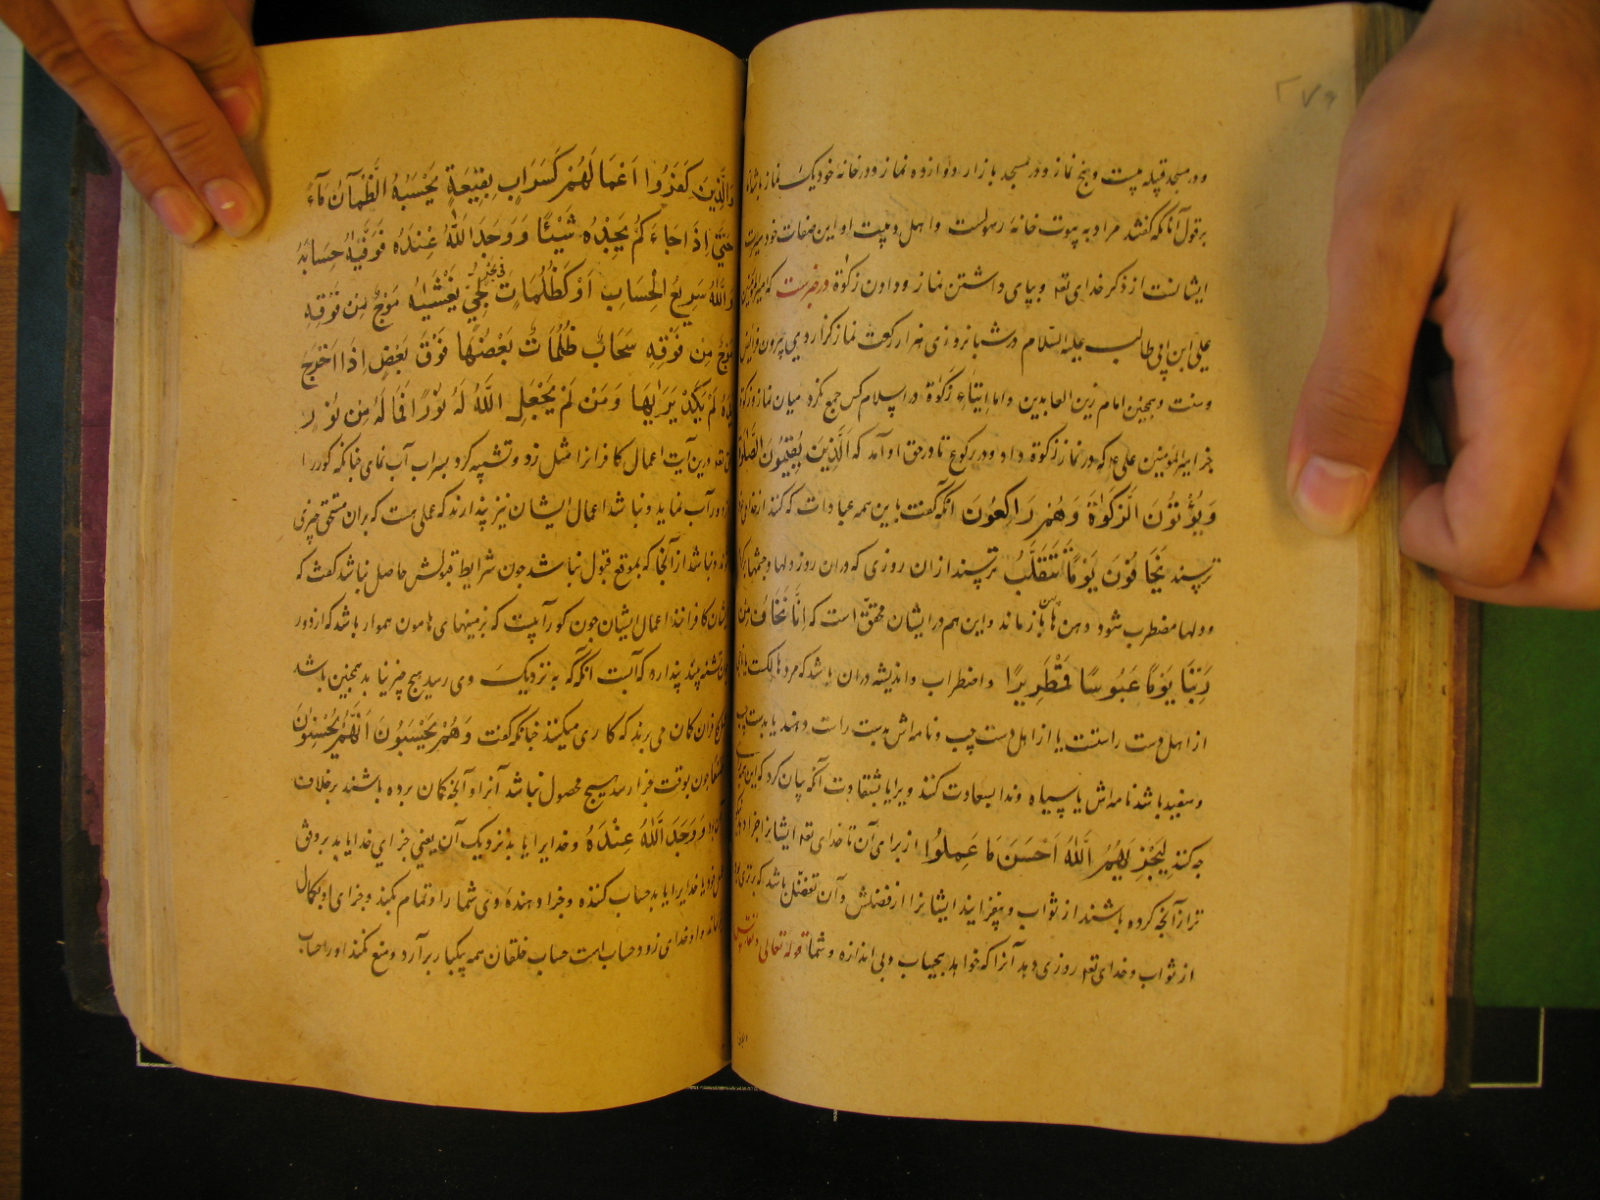 ۲۷۶
و در مسجد قبیله بیست و پنج نماز و در مسجد بازار دوازده نماز و در خانه خود یک نماز
بر قول آنانکه گفتند مراد به بیوت خانه رسولست و اهل و بیت او این صفات خود سیرت
ایشانست از ذکر خدای تعه و بپای داشتن نماز و دادن زکوٰة در خبرست که
علی ابن ابی طالب علیه السلام در شبانروزی هزار رکعت نماز کزاردی بیرون فرایض
و سنت و همچنین امام زین العابدین و اما ایتاء زکوٰة در اسلام کس جمع نکرد میان نماز و زکوة
جز امیر المؤمنین علی که در نماز زکوة داد و در رکوع تا در حق او آمد که الَّذِینَ یُقِیمُونَ الصَّلوٰة
وَیُؤْتُونَ الزَّکوٰةَ وَهُمْ رَاکِعُونَ آنکه گفت با این همه عبادات که کنند از خدای
ترسند یَخَافُونَ یَوْمًا تَتَقَلَّبُ ترسند ازان روزی که دران روز دلها و چشمها
و دلها مضطرب شود و دهن ها باز ماند و این هم در ایشان محقق است که اِنَّا نَخَافُ مِن
رَبِّنَا یَوْمًا عَبُوسًا قَمْطَرِیرًا و اضطراب و اندیشه دران باشد که مرد
از اهل دست راستست یا از اهل دست چپ و نامه اش بدست راست دهند یا بدست چپ
و سفید باشد نامه اش یا سیاه و ندا بسعادت کنند ویرا یا بشقاوت آنکه بیان کرد که این
چه کنند لِیَجْزِیَهُمُ اللّٰهُ اَحْسَنَ مَا عَمِلُوا از برای آن تا خدای تعه ایشانرا جزا دهد
تر از آنچه کرده باشند از ثواب و بیفزایند ایشانرا از فضلش و آن تفضل باشد که
از ثواب و خدای تعه روزی دهد آنرا که خواهد بحساب و بی اندازه و شمار قوله تعالی
وَالَّذِینَ کَفَرُوا اَعْمَالُهُمْ کَسَرَابٍ بِقِیعَةٍ یَحْسَبُهُ الظَّمْآنُ مَآءً
حَتّٰی اِذَا جَاءَهُ لَمْ یَجِدْهُ شَیْئًا وَوَجَدَ اللّٰهَ عِنْدَهُ فَوَفّٰیهُ حِسَابَهُ
وَاللّٰهُ سَرِیعُ الْحِسَابِ اَوْ کَظُلُمَاتٍ فِی بَحْرٍ لُجِّیٍّ یَغْشٰیهُ مَوْجٌ مِن فَوْقِهِ
مَوْجٌ مِن فَوْقِهِ سَحَابٌ ظُلُمَاتٌ بَعْضُهَا فَوْقَ بَعْضٍ اِذَا اَخْرَجَ
یَدَهُ لَمْ یَکَدْ یَرٰیهَا وَمَن لَمْ یَجْعَلِ اللّٰهُ لَهُ نُورًا فَمَا لَهُ مِن نُورٍ
درین آیت اعمال کافرانرا مثل زد و تشبیه کرد بسراب آب نمای چنانکه کور را
از دور آب نماید و نباشد اعمال ایشان نیز پندارند که عملی هست که بران مستحق چیزی
و نباشد از آنجا که بموقع قبول نباشد چون شرایط قبولش حاصل نباشد گفت که
ایشان کافرانند اعمال ایشان چون کورآبیست که بزمینهای هامون هموار باشد که از دور
تشنه بیند پندارد که آبست آنکه که به نزدیک وی رسید هیچ چیز نیابد همچنین باشد
کافران کمان می برند که کاری میکنند چنانکه گفت وَهُمْ یَحْسَبُونَ اَنَّهُمْ یُحْسِنُونَ
چون بوقت جزا رسد هیچ محصول نباشد آنرا و آنچه کمان برده باشند بر خلاف
وَوَجَدَ اللّٰهَ عِنْدَهُ و خدایرا یابد نزدیک آن یعنی جزای خدا یابد بر وفق
خود یا خدایرا یابد حساب کننده و جزا دهنده وی شمار او تمام بکند و جزای او بکمال
و او خدای زود حساب است حساب خلقان همه بیکبار برآرد و منع نکند او را حساب